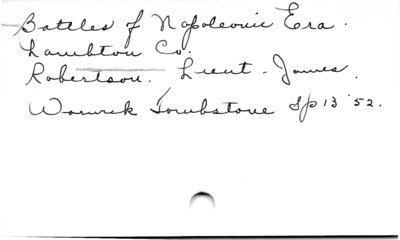 Battles of Napoleonic Era.
Lambton Co.
Robertson. Lieut. James.
Warwick Tombstone Sp 13 '52.